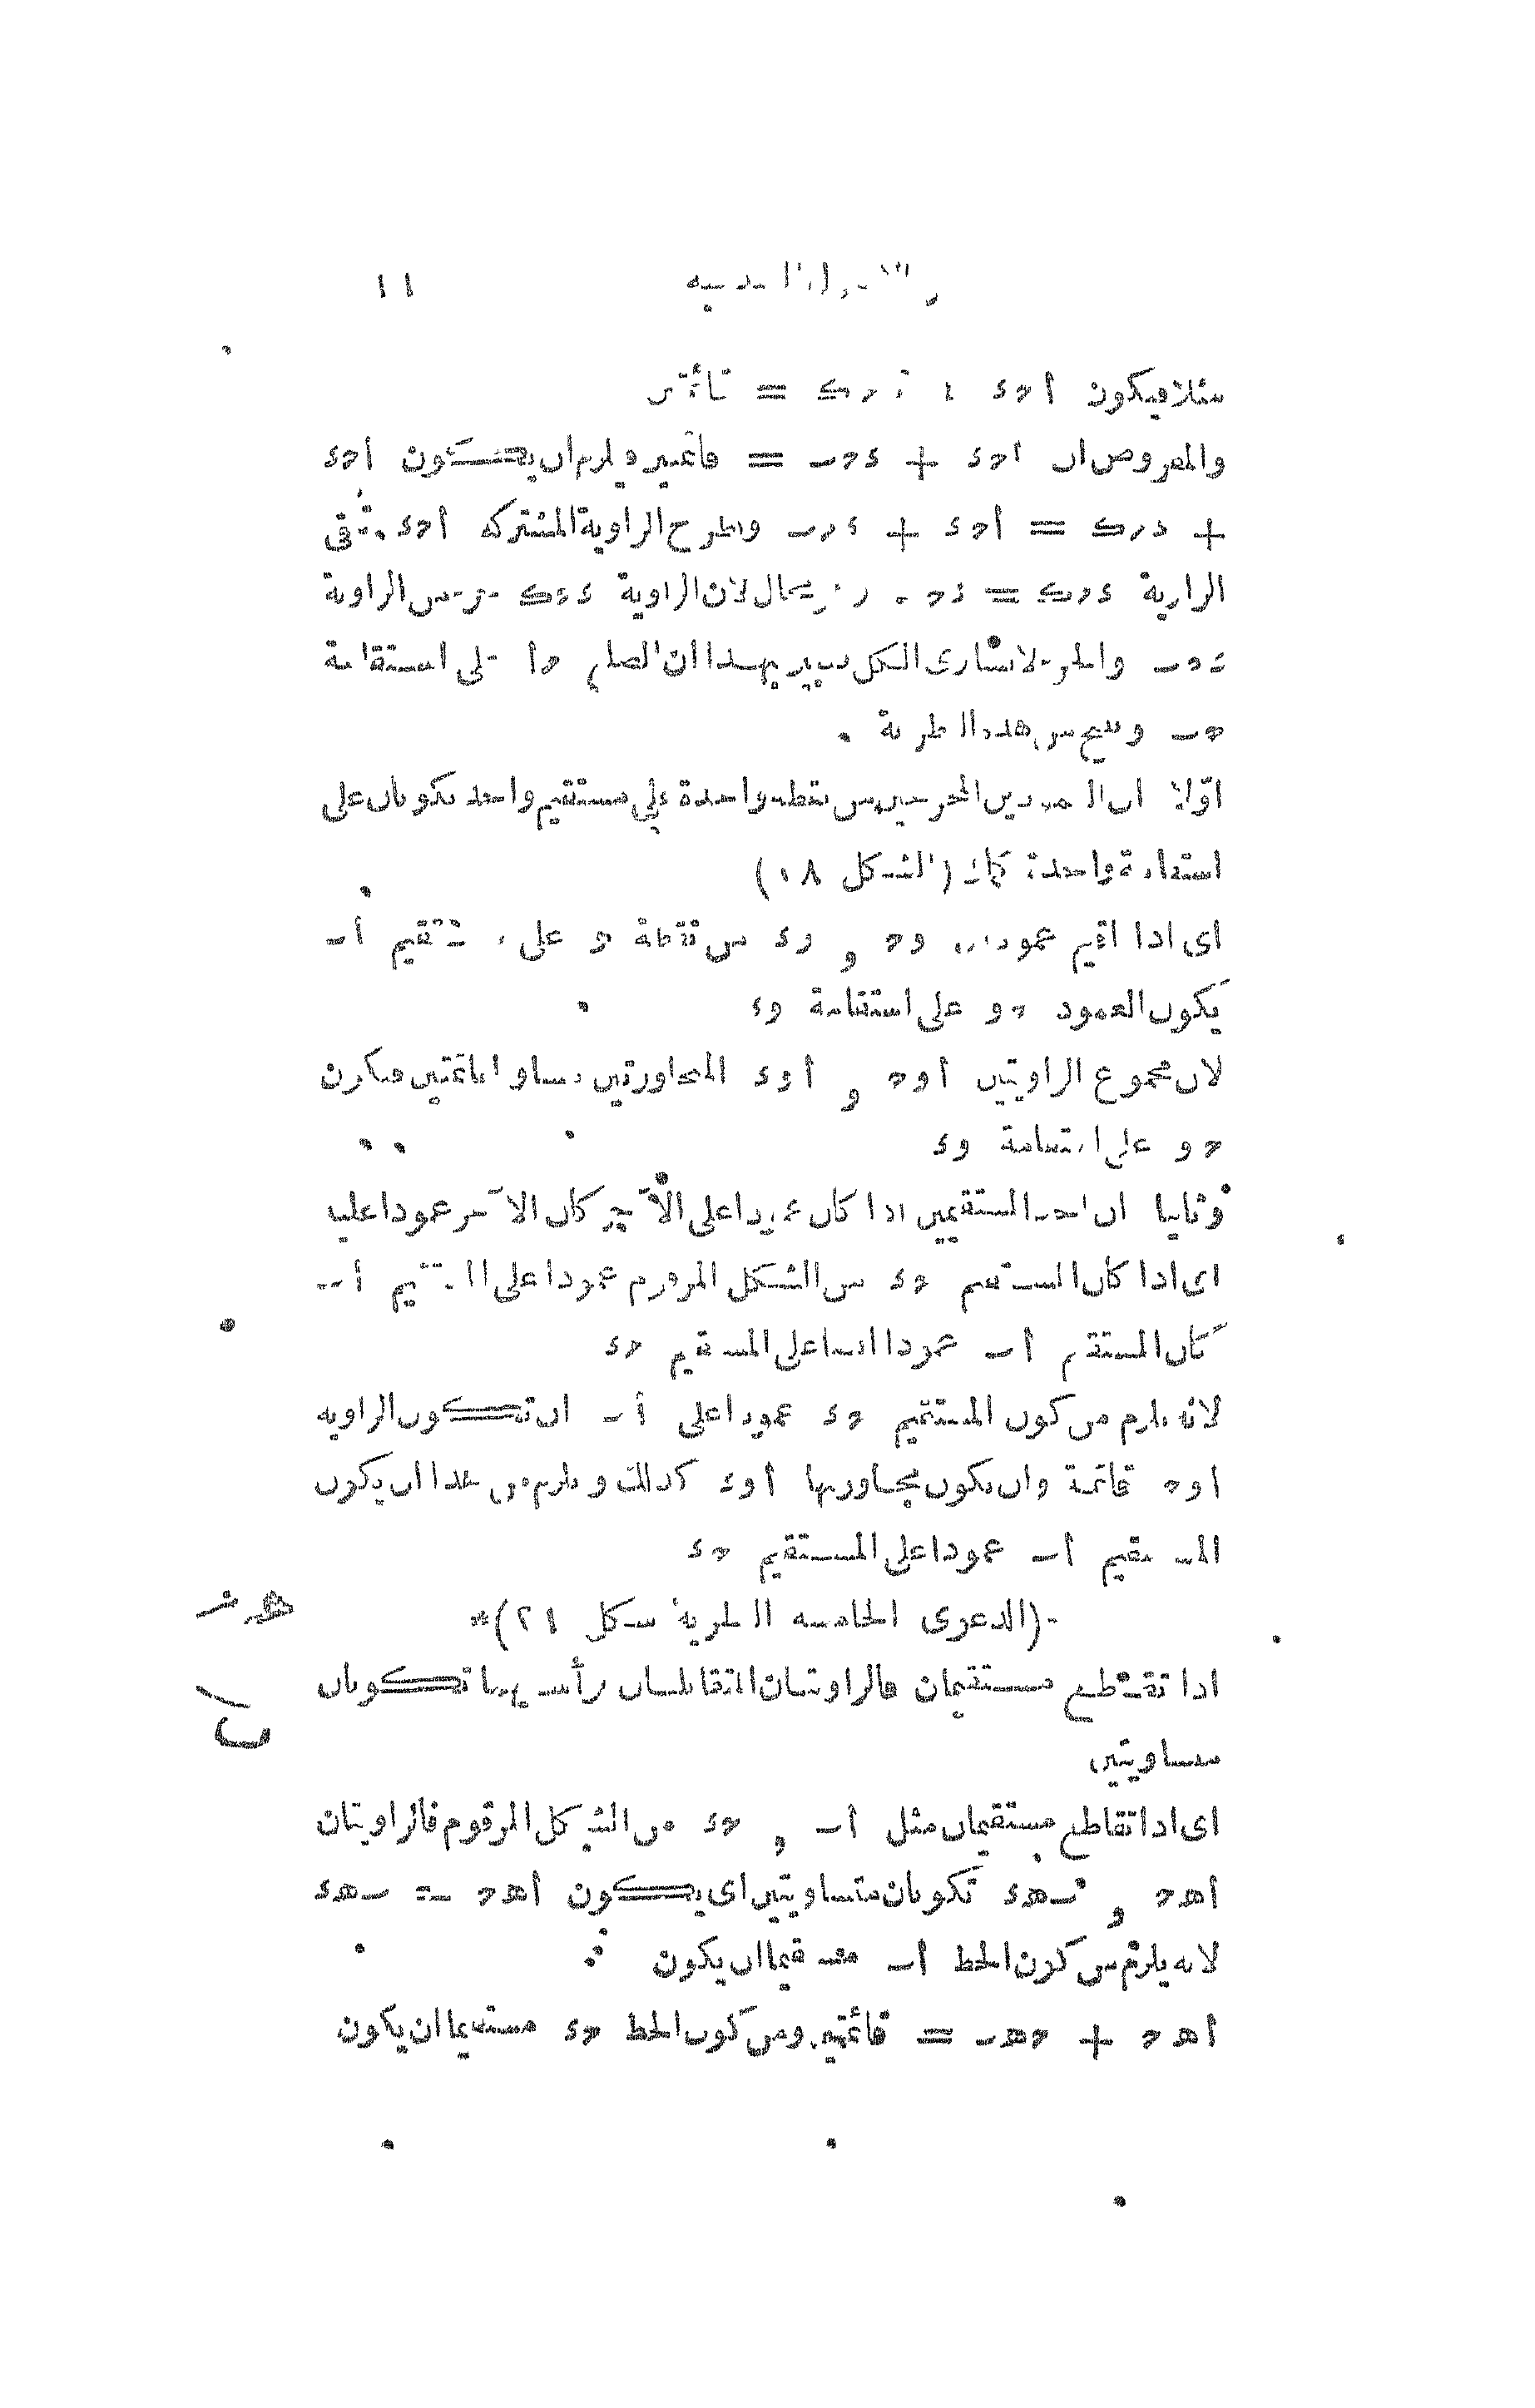 ١١
مثلا فيكون أحء + ءحك = قائمتين
والمفروض ان أحء + ءحب = قائمتين ويلزم ان يكون أحء
+ ءحك = أحء + ءحب وبطرح الزاوية المشتركة أحء يبقى
الزاوية ءحك = ءحب وهو محال لان الزاوية ءحك جزء من الزاوية
ءحب والجزء لا يساوى الكل فتبين بهذا ان الضلع حأ على استقامة
حب وينتج من هذه النظرية
اوّلا ان العمودين المخرجين من نقطة واحدة على مستقيم واحد يكونان على
استقامة واحدة كما فى (الشكل ١٨)
اى اذا اقيم عمودان وح و وء من نقطة و على مستقيم أب
يكون العمود حو على استقامة وء
لان مجموع الزاويتين أوح و أوء المتجاورتين يساوى قائمتين فيكون
حو على استقامة وء
وثانيا ان احد المستقيمين اذا كان عمودا على الآخر كان الآخر عمودا عليه
اى اذا كان المستقيم حء من الشكل المرقوم عمودا على المستقيم أب
كان المستقيم أب عمودا ايضا على المستقيم حء
لانه يلزم من كون المستقيم حء عمودا على أب ان تكون الزاوية
أوح قائمة وان يكون مجاورها أوء كذلك ويلزم من هذا ان يكون
المستقيم أب عمودا على المستقيم حء
(الدعوى الخامسة النظرية شكل ٢١)*
اذا تقاطع مستقيمان فالزاويتان المتقابلتان برأسيهما تكونان
متساويتين
اى اذا تقاطع مستقيمان مثل أب و حء من الشكل المرقوم فالزاويتان
أهح و بهء تكونان متساويتين اى يكون أهح = بهء
لانه يلزم من كون الخط أب مستقيما ان يكون
أهح + حهب = قائمتين ومن كون الخط حء مستقيما ان يكون